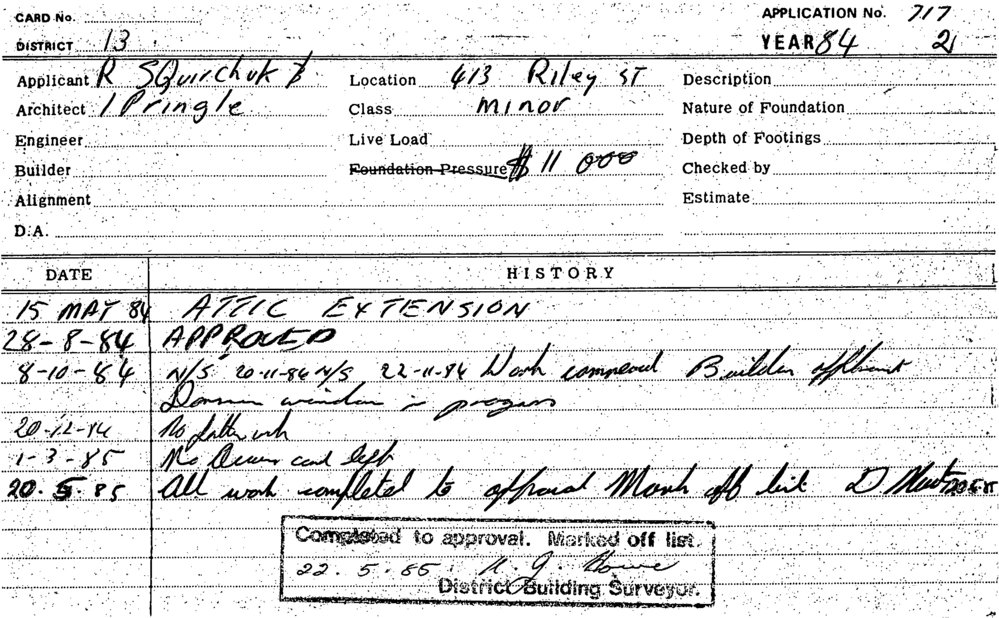 CARD No. APPLICATION No. 717
DISTRICT 13 YEAR 84 2
Applicant R SQuirchuk Location 413 Riley ST Description
Architect I Pringle Class minor Nature of Foundation
Engineer Live Load Depth of Footings
Builder Foundation Pressure $11 000 Checked by
Alignment Estimate
D.A.
DATE HISTORY
15 MAY 84 ATTIC EXTENSION
28-8-84 APPROVED
8-10-84 N/S 20-11-84 N/S 22-11-84 Work commenced Builder applicant
Dormer window in progress
20-12-84 No further work
1-3-85 No Answer card left
20.5.85 All work completed to approval Mark off list D 20.5.85
Completed to approval. Marked off list.
22.5.85.
District Building Surveyor.